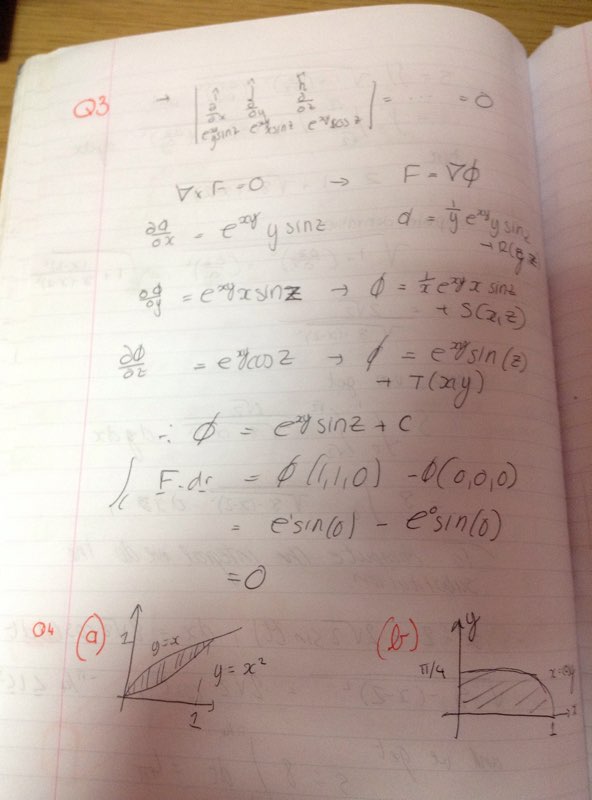 Q3 → | î ĵ k̂ ∂/∂x ∂/∂y ∂/∂z e^xy y sinz e^xy x sinz e^xy cos z | = ..... = 0
∇×F = 0 → F = ∇ϕ
∂ϕ/∂x = e^xy y sinz ϕ = 1/y e^xy y sinz
+ R(y, z)
∂ϕ/∂y = e^xy x sin z → ϕ = 1/x e^xy x sinz
+ S(x, z)
∂ϕ/∂z = e^xy cos z → ϕ = e^xy sin(z)
+ T(x,y)
∴ ϕ = e^xy sinz + C
∫ F.dr = ϕ(1,1,0) - ϕ(0,0,0)
= e^1 sin(0) - e^0 sin(0)
= 0
Q4 (a)
1
y = x
y = x²
1
(b)
y
π/4
x
1